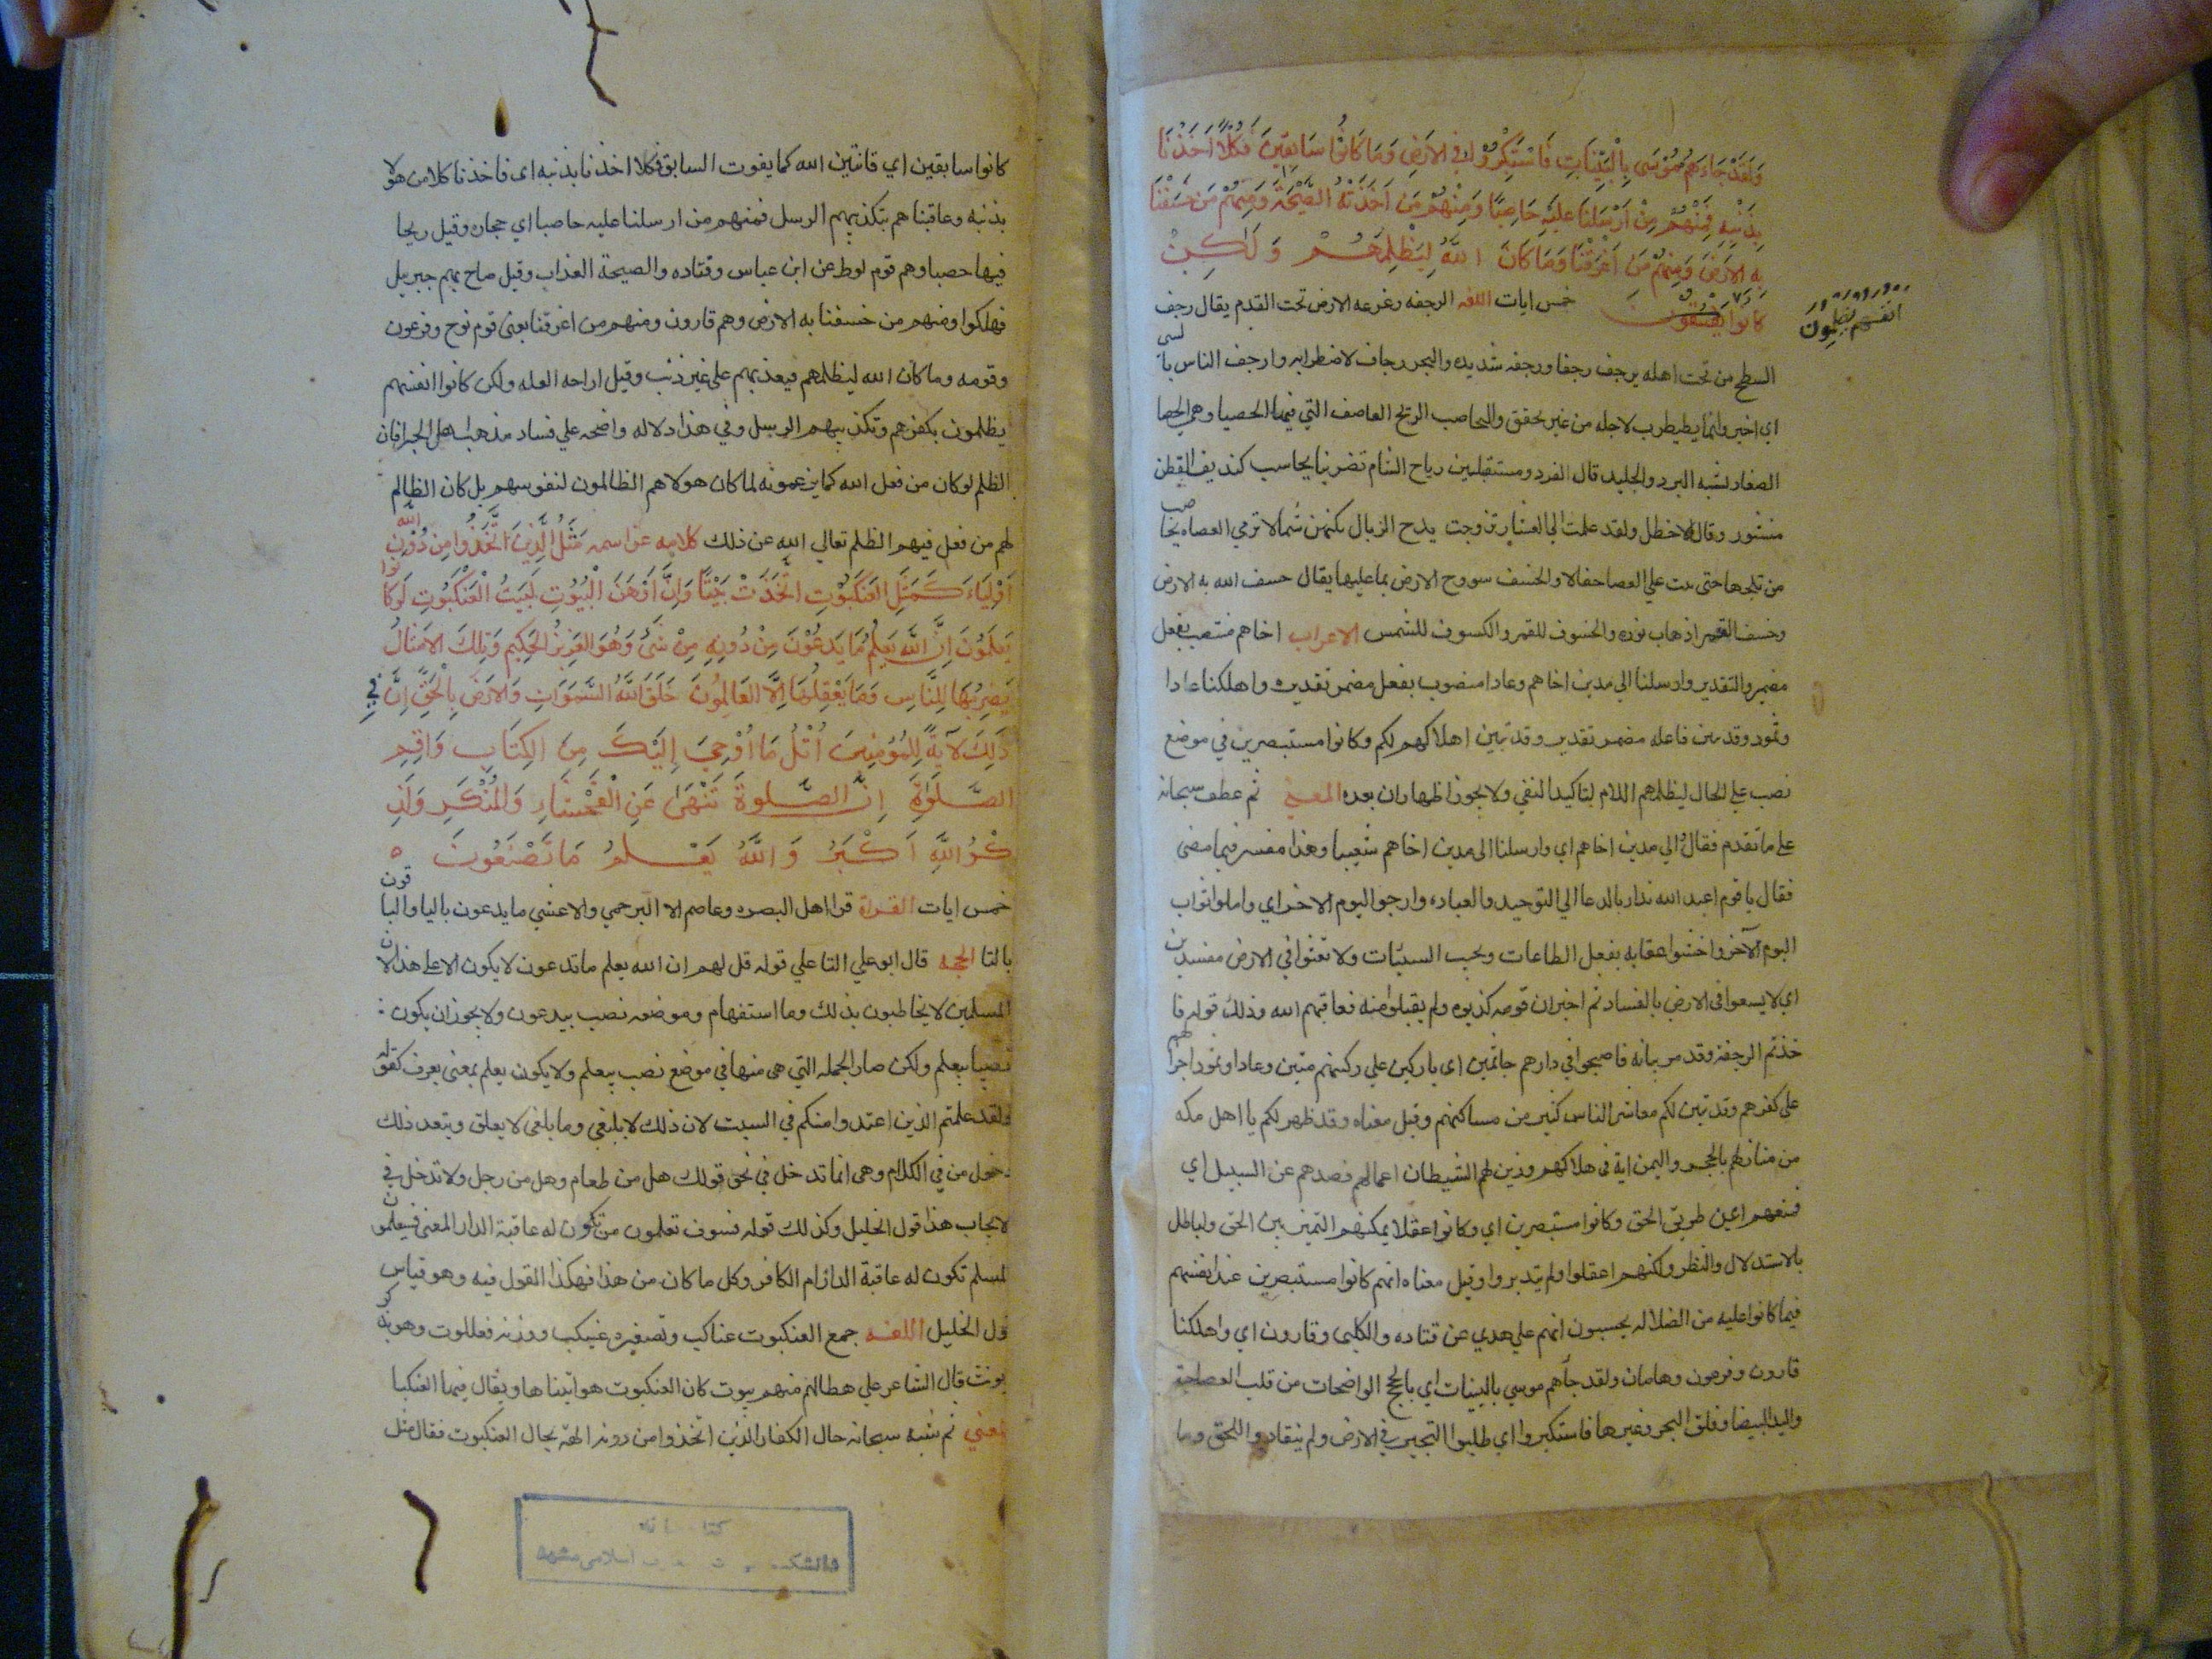 وَلَقَدْ جَاءَهُمْ مُوسَى بِالْبَيِّنَاتِ فَاسْتَكْبَرُوا فِي الارَضِ وَمَا كَانُوا سَابِقِينَ فَكُلًّا اَخَذْنَا
بِذَنْبِهِ فَمِنْهُمْ مِنْ اَرْسَلْنَا عَلَيْهِ حَاصِبًا وَمِنْهُمْ مَن اَخَذَتْهُ الصَّيْحَةُ وَمِنْهُمْ مَن خَسَفْنَا
بِهِ الارَضَ وَمِنْهُمْ مَن اَغْرَقْنَا وَمَا كَانَ اللَّهُ لِيَظْلِمَهُمْ وَلَكِنْ
كَانُوا خمس ايات اللغه الرجفه زعزعه الارض تحت القدم يقال رجف
انفسهم يظلمون
السطح من تحت اهله يرجف رجفا ورجفه شديده والبحر رجاف لاضطرابه وارجف الناس با
لسى
اي اخبروا بما يضطرب لاجله من غير تحقق والحاصب الريح العاصف التي فيها الحصبا وهي الحصا
الصغار يشبه البرد والجليد قال الفرد ومستقبلين رياح الشام تضربنا بحاصب كنديف القطن
منثور وقال الاخطل ولقد علمت الى العشار تزوجت يدح الزبال تكنهن شمالا ترمي العصاه بحا
صب
من ثلجها حتى يبت علي العصا حفالا والخسف سووح الارض بما عليها يقال خسف الله به الارض
وخسف القمر اذهاب نوره والخسوف للقمر والكسوف للشمس الاعراب اخاهم منتصب بفعل
مضمر والتقدير وارسلنا الى مدين اخاهم وعادا منصوب بفعل مضمر تقديره واهلكنا عادا
وثمود وقد تبين فاعله مضمر تقديره وقد تبين اهلاكهم لكم وكانوا مستبصرين في موضع
نصب على الحال ليظلمهم اللام لتاكيد النفي ولا يجوز اظهار ان بعده المعنى ثم عطف سبحانه
على ما تقدم فقال والي مدين اخاهم اي وارسلنا الى مدين اخاهم شعيبا وهذا مفسر فيما مضى
فقال يا قوم اعبدوا الله بدا بالدعا الي التوحيد والعباده وارجوا اليوم الاخر اي واملوا ثواب
اليوم الآخر واخشوا عقابه بفعل الطاعات وتجنب السيئات ولا تعثوا في الارض مفسدين
اي لا يسعوا في الارض بالفساد ثم اخبر ان قومه كذبوه ولم يقبلوا منه فعاقبهم الله وذلك قوله فا
خذتهم الرجفة وقد مر بيانه فاصبحوا في دارهم جاثمين اي باركين علي ركبهم ميتين وعادا وثمود اجزا
هم
على كفرهم وقد تبين لكم معاشر الناس كثير من مساكنهم وقيل معناه وقد ظهر لكم يا اهل مكه
من منازلهم بالحجر واليمن اية في هلاكهم وزين لهم الشيطان اعمالهم فصدهم عن السبيل اي
فمنعهم عن طريق الحق وكانوا مستبصرين اي وكانوا عقلا يمكنهم التميز بين الحق والباطل
بالاستدلال والنظر ولكنهم اعقلوا ولم يتدبروا وقيل معناه انهم كانوا مستبصرين عند انفسهم
فيما كانوا عليه من الضلاله يحسبون انهم علي هدي عن قتاده والكلبي وقارون اي واهلكنا
قارون وفرعون وهامان ولقد جاهم موسي بالبينات اي بالحجج الواضحات من قلب العصا حية
واليد البيضا وفلق البحر وغيرها فاستكبروا اي طلبوا التجبر في الارض ولم ينقادوا للحق وما
كانوا سابقين اي فائتين الله كما يفوت السابق فكلا اخذنا بذنبه اى فاخذنا كلا من هولا
بذنبه وعاقبناهم بتكذيبهم الرسل فمنهم من ارسلنا عليه حاصبا اي حجاره وقيل ريحا
فيها حصبا وهم قوم لوط عن ابن عباس وقتاده والصيحة العذاب وقيل صاح بهم جبريل
فهلكوا ومنهم من خسفنا به الارض وهم قارون ومنهم من اغرقنا يعنى قوم نوح وفرعون
وقومه وما كان الله ليظلمهم فيعذبهم على غير ذنب وقيل اراحه العله ولكن كانوا انفسهم
يظلمون بكفرهم وتكذيبهم الرسل وفي هذا دلاله واضحه علي فساد مذهب اهل الجبر فان
الظلم لو كان من فعل الله كما يزعمونه لما كان هولاهم الظالمون لنفوسهم بل كان الظالم
لهم من فعل فيهم الظلم تعالي الله عن ذلك كلامه عز اسمه مَثَلُ الَّذِينَ اتَّخَذُوا مِن دُونِ
الله
اَوْلِيَاءَ كَمَثَلِ العَنْكَبُوتِ اتَّخَذَتْ بَيْتًا وَاِنَّ اَوْهَنَ الْبُيُوتِ لَبَيْتُ الْعَنْكَبُوتِ لَوْ كَا
نوا
يَعْلَمُونَ اِنَّ اللَّهَ يَعْلَمُ مَا يَدْعُونَ مِنْ دُونِهِ مِنْ شَئٍ وَهُوَ العَزِيزُ الحَكِيمُ وَتِلْكَ الامَثَالُ
نَضْرِبُهَا لِلنَّاسِ وَمَا يَعْقِلُهَا اِلَّا العَالِمُونَ خَلَقَ اللَّهُ السَّمَوَاتِ وَالارَضَ بِالْحَقِّ اِنَّ فِي
ذَلِكَ لَآيَةً لِلْمُؤْمِنِينَ اُتْلُ مَا اُوْحِيَ اِلَيْكَ مِنَ الكِتَابِ وَاَقِمِ
الصَّلَوةَ اِنَّ الصَّلَوةَ تَنْهَى عَنِ الْفَحْشَاءِ وَالْمُنْكَرِ وَلَذِ
كْرُ اللَّهِ اَكْبَرُ وَاللَّهُ يَعْلَمُ مَا تَصْنَعُونَ
خمس ايات القراة قرا اهل البصره وعاصم الا البرجمي والاعشي ما يدعون باليا والبا
قون
بالتا الحجه قال ابو علي التا علي قوله قل لهم ان الله يعلم ما تدعون لا يكون الا علي هذا لان
المسلمين لا يخاطبون بذلك وما استفهام وموضعه نصب بيدعون ولا يجوز ان يكون
نصبا بيعلم ولكن صار الجمله التي هي منها في موضع نصب بيعلم ولا يكون يعلم بمعنى يعرف كقوله
ولقد علمتم الذين اعتدوا منكم في السبت لان ذلك لا يلغى وما يلغى لا يعلق ويبعد ذلك
دخول من في الكلام وهى انما تدخل في نحو قولك هل من طعام وهل من رجل ولا تدخل في
الايجاب هذا قول الخليل وكذلك قوله فسوف تعلمون من تكون له عاقبة الدار المعنى فسيعلمون
المسلم تكون له عاقبة الدار ام الكافر وكل ما كان من هذا فهكذا القول فيه وهو قياس
قول الخليل اللغه جمع العنكبوت عناكب وتصغيره عنيكب ووزنه فعللوت وهو يذ
كر
يونث قال الشاعر علي هطالهم منهم بيوت كان العنكبوت هو ابتناها ويقال فيها العنكبا
المعني ثم شبه سبحانه حال الكفار الذين اتخذوا من دونه الهة بحال العنكبوت فقال مثل